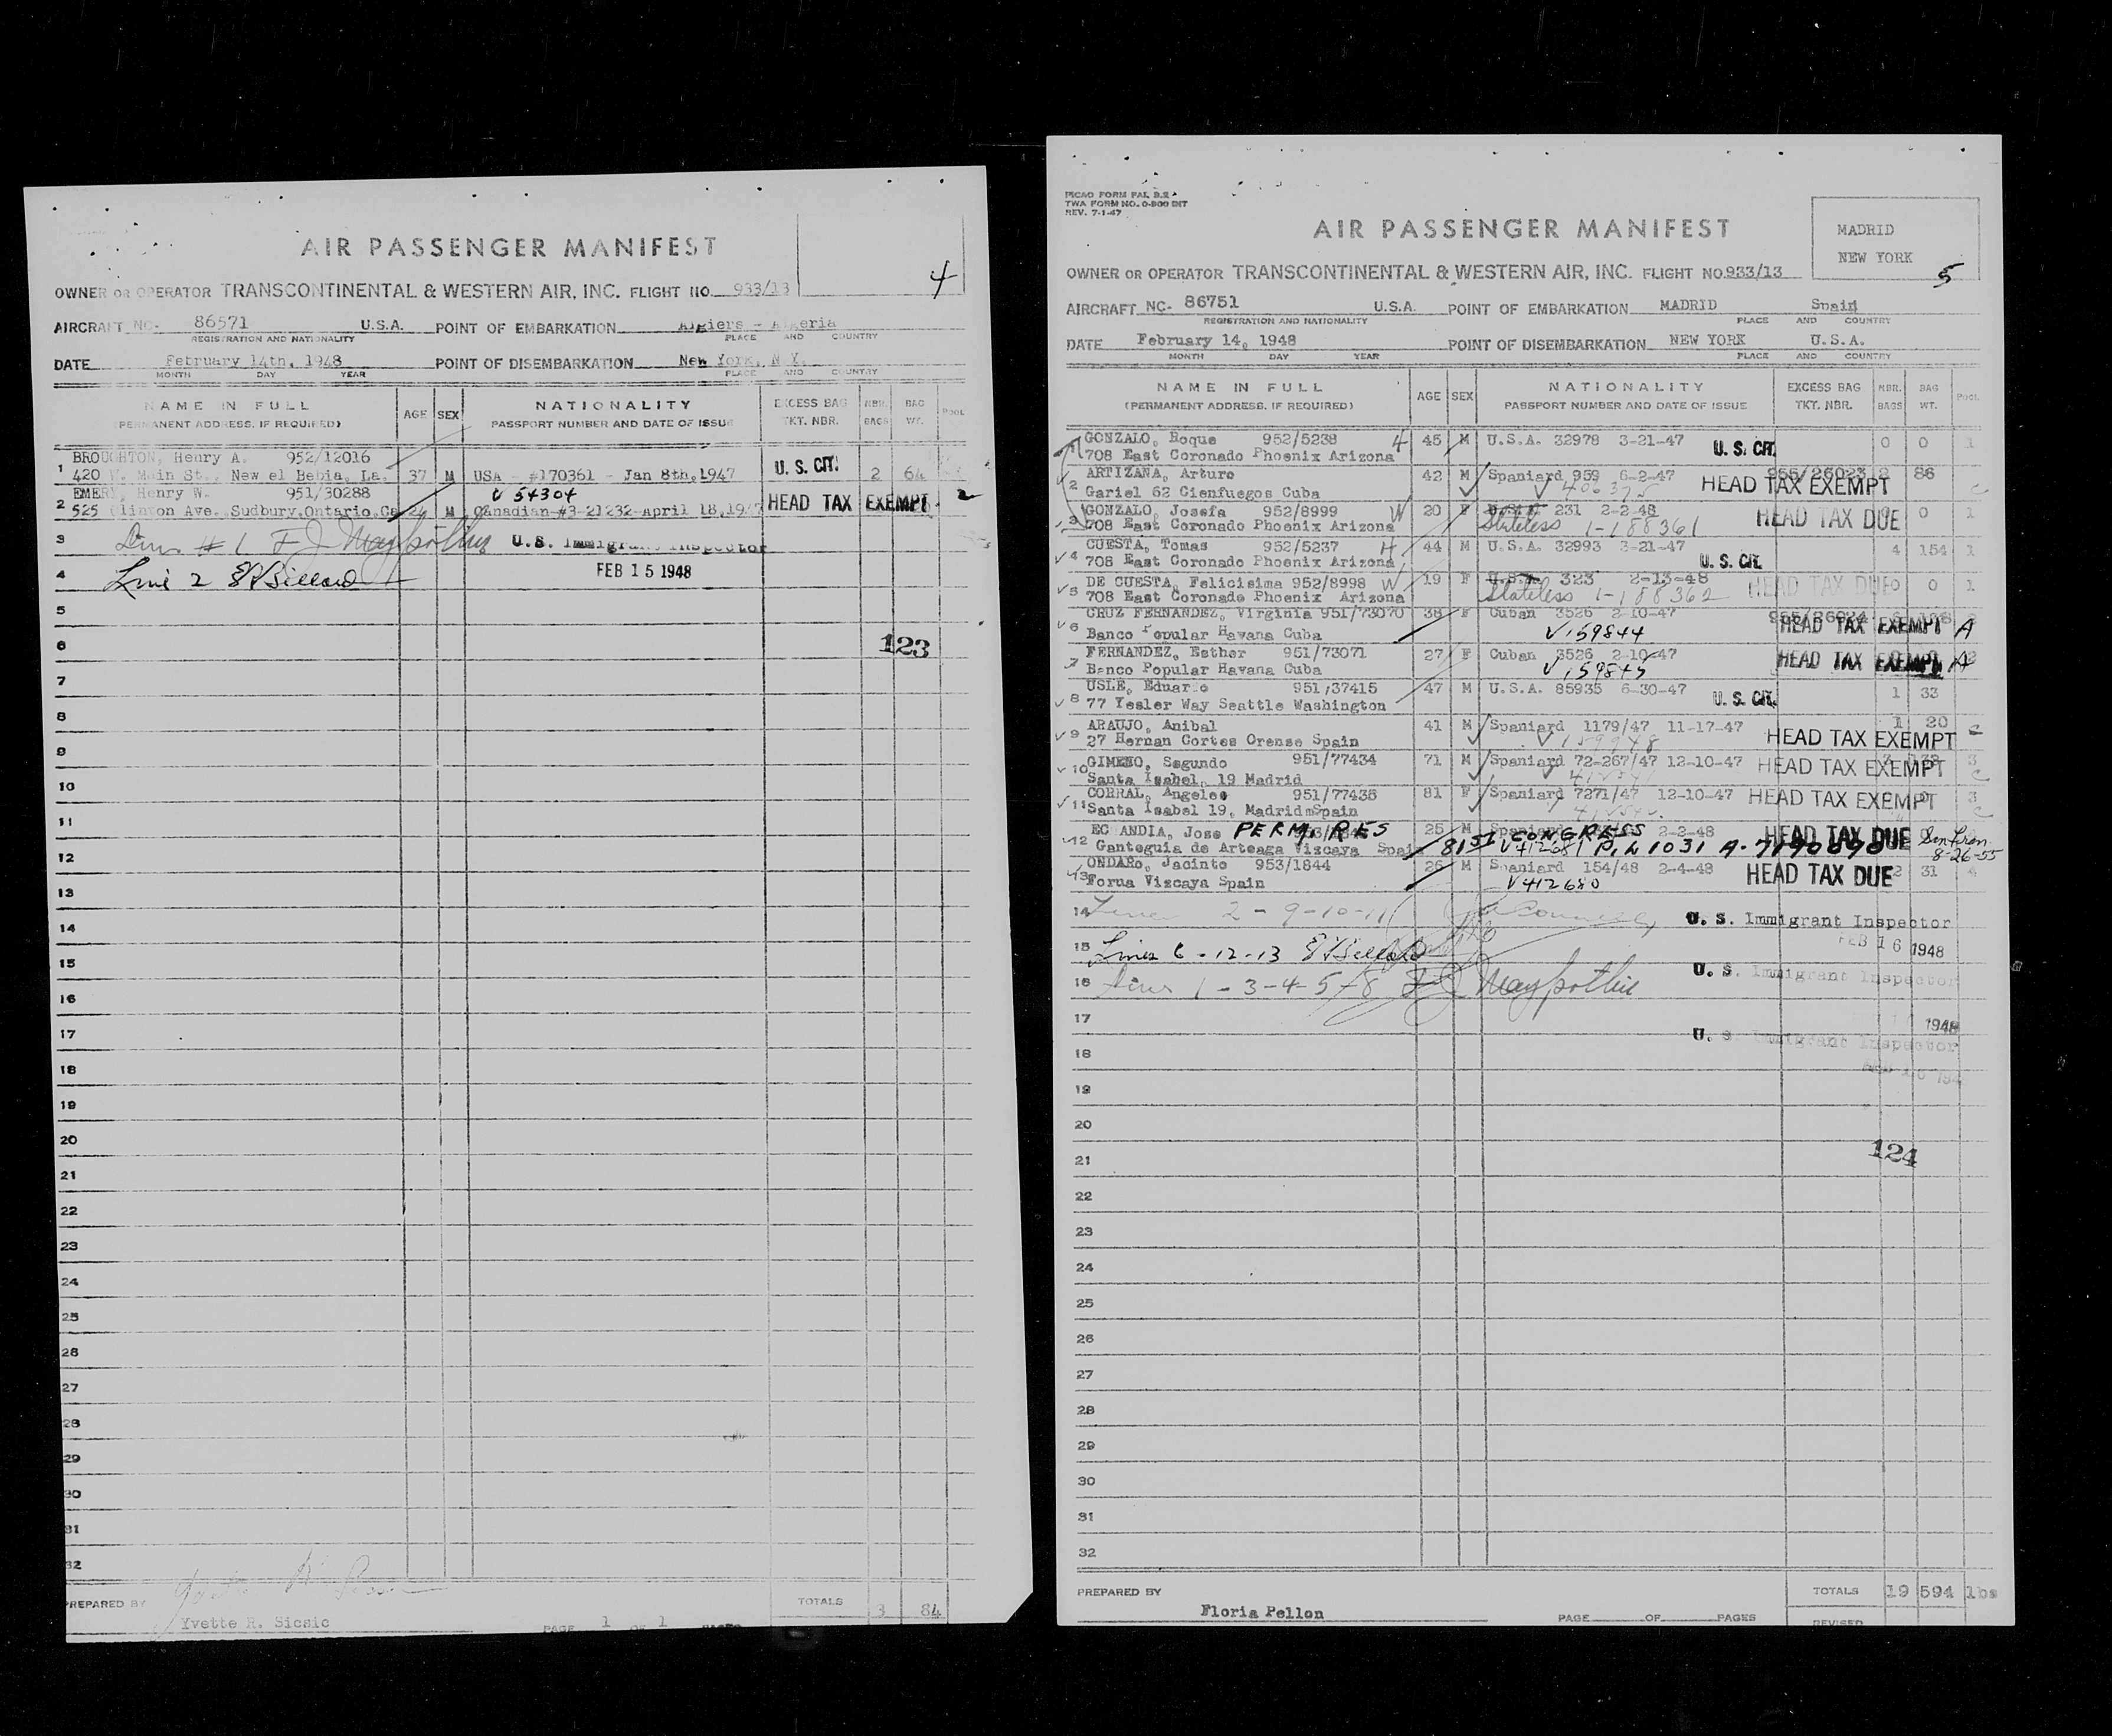 AIR PASSENGER MANIFEST
4
OWNER OR OPERATOR TRANSCONTINENTAL & WESTERN AIR, INC. FLIGHT NO. 933/13
AIRCRAFT NC- 86571 U.S.A. POINT OF EMBARKATION Algiers - Algeria
REGISTRATION AND NATIONALITY PLACE AND COUNTRY
DATE February 14th, 1948 POINT OF DISEMBARKATION New York, N.Y.
MONTH DAY YEAR PLACE AND COUNTRY
NAME IN FULL AGE SEX NATIONALITY EXCESS BAG NBR. BAG POOL
(PERMANENT ADDRESS, IF REQUIRED) PASSPORT NUMBER AND DATE OF ISSUE TKT. NBR. BAGS WT.
BROUGHTON, Henry A. 952/12016
1 420 Main St., New el Bebia, La. 37 M USA - #170361 - Jan 8th, 1947 U.S. CIT. 2 64
EMERY, Henry W. 951/30288 V 54304
2 525 Clinton Ave. Sudbury, Ontario, Ca M Canadian-#3-21232-April 18, 1947 HEAD TAX EXEMPT 2
3 Line #1 U.S. Immigrant Inspector
4 Line 2 FEB 15 1948
5
6 123
7
8
9
10
11
12
13
14
15
16
17
18
19
20
21
22
23
24
25
26
27
28
29
30
31
32
PREPARED BY Yvette R. Sicsic PAGE 1 OF 1 PAGES TOTALS 3 84
PICAO FORM PAI. B.2
TWA FORM NO. 0-800 INT
REV. 7-1-47
AIR PASSENGER MANIFEST
MADRID
NEW YORK
5
OWNER OR OPERATOR TRANSCONTINENTAL & WESTERN AIR, INC. FLIGHT NO. 933/13
AIRCRAFT NC- 86751 U.S.A. POINT OF EMBARKATION MADRID Spain
REGISTRATION AND NATIONALITY PLACE AND COUNTRY
DATE February 14, 1948 POINT OF DISEMBARKATION NEW YORK U.S.A.
MONTH DAY YEAR PLACE AND COUNTRY
NAME IN FULL AGE SEX NATIONALITY EXCESS BAG NBR. BAG POOL
(PERMANENT ADDRESS, IF REQUIRED) PASSPORT NUMBER AND DATE OF ISSUE TKT. NBR. BAGS WT.
1 GONZALO, Roque 952/5238 H 45 M U.S.A. 32978 3-21-47 U.S. CIT. 0 0 1
708 East Coronado Phoenix Arizona
2 ARTIZANA, Arturo 42 M Spaniard 959 6-2-47 955/26023 2 86
Gariel 62 Cienfuegos Cuba HEAD TAX EXEMPT
3 GONZALO, Josefa 952/8999 W 20 F U.S.A. 231 2-2-48 HEAD TAX DUE 0 1
708 East Coronado Phoenix Arizona Stateless 1-188361
4 CUESTA, Tomas 952/5237 H 44 M U.S.A. 32993 3-21-47 4 154 1
708 East Coronado Phoenix Arizona U.S. CIT.
5 DE CUESTA, Felicisima 952/8998 W 19 F U.S.A. 323 2-13-48 HEAD TAX DUE 0 0 1
708 East Coronado Phoenix Arizona Stateless 1-188362
6 CRUZ FERNANDEZ, Virginia 951/73070 38 F Cuban 3526 2-10-47 955/26024
Banco Popular Havana Cuba V159844 HEAD TAX EXEMPT A
7 FERNANDEZ, Esther 951/73071 27 F Cuban 3526 2-10-47 HEAD TAX EXEMPT A
Banco Popular Havana Cuba V159845
8 USLE, Eduardo 951/37415 47 M U.S.A. 85935 6-30-47 U.S. CIT. 1 33
77 Yesler Way Seattle Washington
9 ARAUJO, Anibal 41 M Spaniard 1179/47 11-17-47 1 20
27 Hernan Cortes Orense Spain HEAD TAX EXEMPT
10 GIMENO, Segundo 951/77434 71 M Spaniard 72-267/47 12-10-47 HEAD TAX EXEMPT 3
Santa Isabel, 19 Madrid
11 CORRAL, Angeles 951/77435 81 F Spaniard 7271/47 12-10-47 HEAD TAX EXEMPT 3
Santa Isabel 19, Madrid Spain
12 EC ANDIA, Jose PERM. RES 25 M Spaniard 2-2-48 HEAD TAX DUE
Ganteguia de Arteaga Vizcaya Spain 81st CONGRESS V412681 P.L 1031 A-7190890 San Fran. 8-26-55
13 ONDARO, Jacinto 953/1844 26 M Spaniard 154/48 2-4-48 HEAD TAX DUE 2 31 4
Forua Vizcaya Spain V412680
14 Lines 2-9-10-11 U.S. Immigrant Inspector
FEB 16 1948
15 Lines 6-12-13 U.S. Immigrant Inspector
16 Lines 1-3-4-5-8
17 1948
U.S. Immigrant Inspector
18
19
20
21 124
22
23
24
25
26
27
28
29
30
31
32
PREPARED BY Floria Pellon PAGE OF PAGES TOTALS 19 594 lbs
REVISED